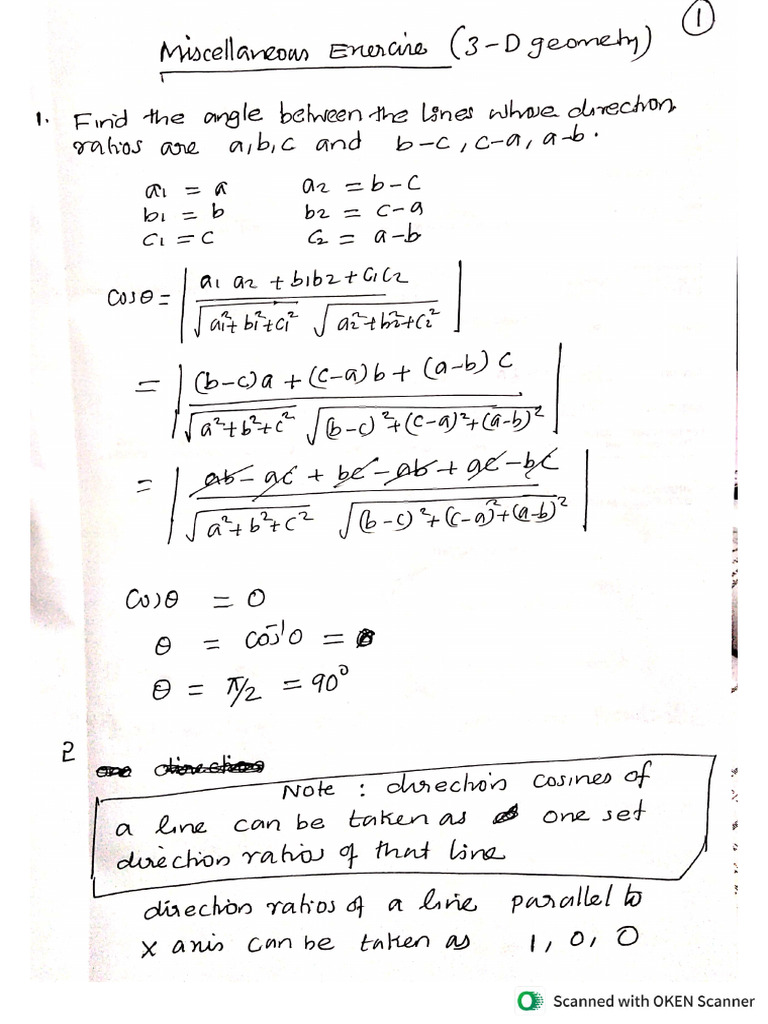 1
Miscellaneous Exercise (3-D geometry)
1. Find the angle between the lines whose direction
ratios are a, b, c and b-c, c-a, a-b.
a1 = a a2 = b-c
b1 = b b2 = c-a
c1 = c c2 = a-b
cosθ = | (a1 a2 + b1b2 + c1c2) / (√(a1²+b1²+c1²) √(a2²+b2²+c2²)) |
= | ((b-c)a + (c-a)b + (a-b)c) / (√(a²+b²+c²) √((b-c)²+(c-a)²+(a-b)²)) |
= | (ab - ac + bc - ab + ac - bc) / (√(a²+b²+c²) √((b-c)²+(c-a)²+(a-b)²)) |
cosθ = 0
θ = cos⁻¹0 =
θ = π/2 = 90⁰
2
Note : direction cosines of
a line can be taken as one set
direction ratios of that line
direction ratios of a line parallel to
x axis can be taken as 1, 0, 0
Scanned with OKEN Scanner